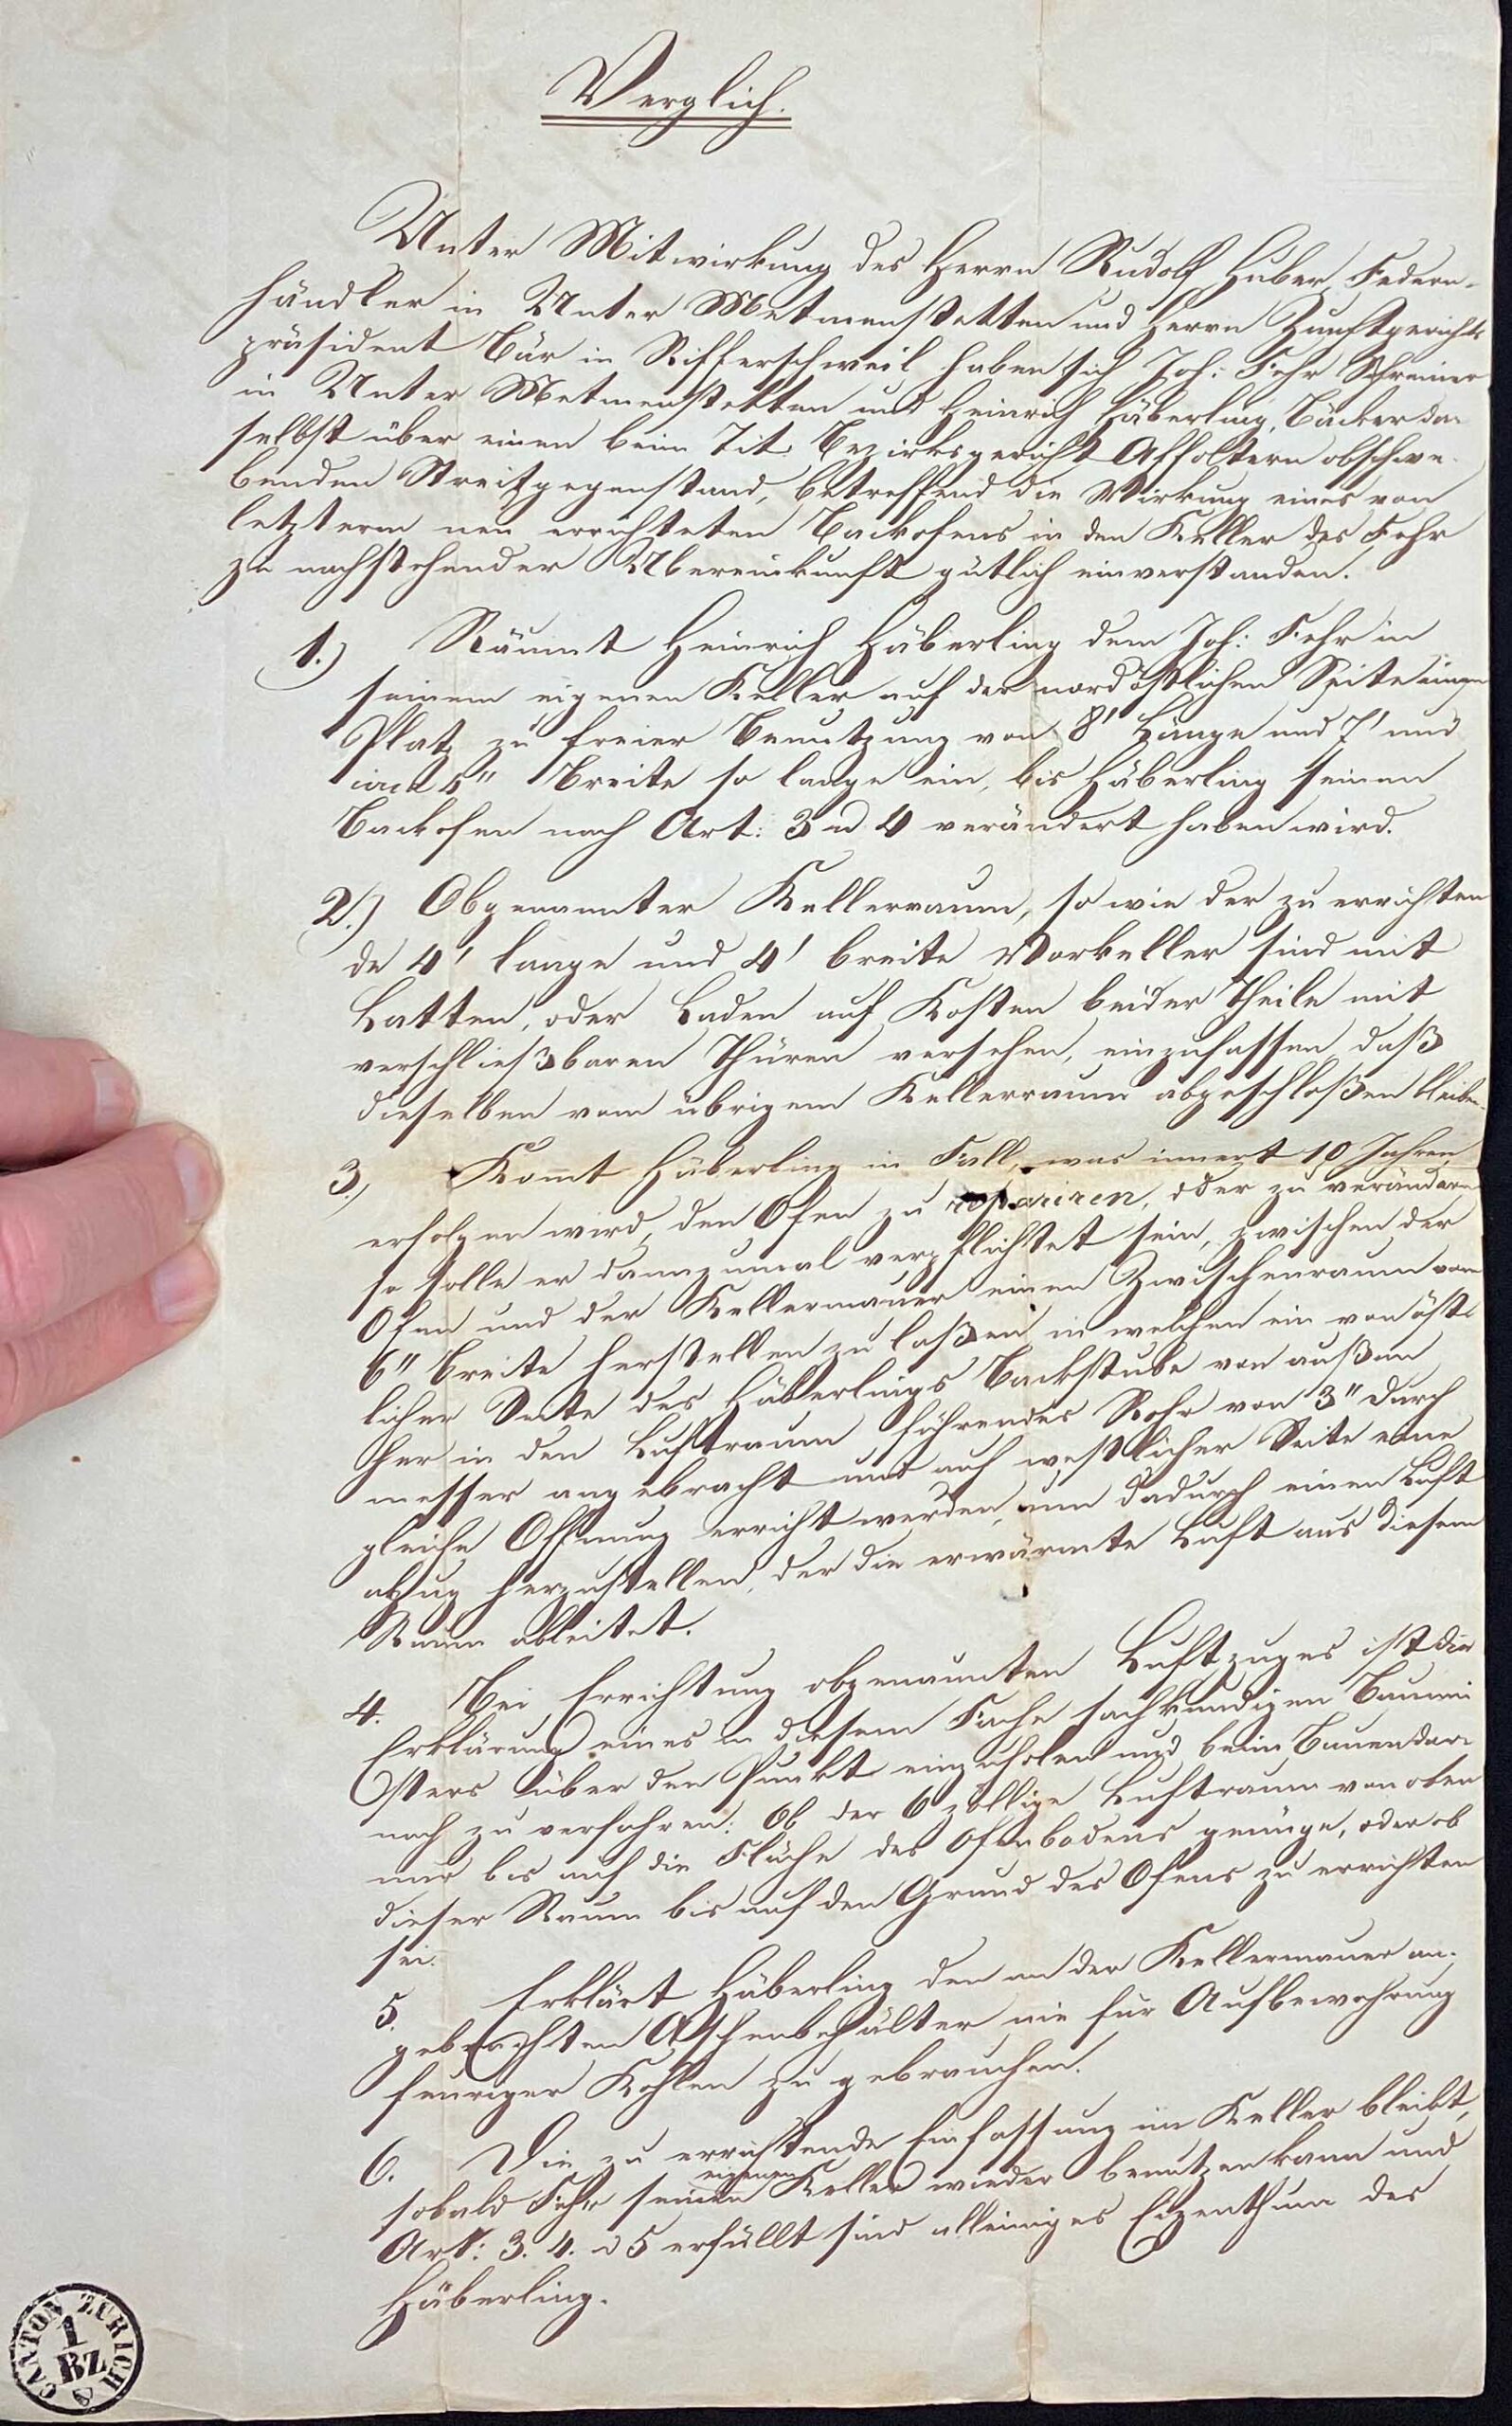 Verglich.
Unter Mitwirkung des Herrn Rudolf Huber, Federn-
händler in Unter Metmenstetten und Herrn Zunftgerichts
präsident Bär in Rifferschweil haben sich Joh: Fehr Schreiner
in Unter Metmenstetten und Heinrich Häberling, Bäcker da-
selbst über einen beim Tit. Bezirksgericht Affoltern obschwe-
benden Streitgegenstand, betreffend die Wirkung eines von
letzterm neu errichteten Backofens in den Keller des Fehr
zu nachstehender Übereinkunft gütlich einverstanden.
1.) Räumt Heinrich Häberling dem Joh: Fehr in
seinem eigenen Keller auf der nordöstlichen Seite einen
Platz zu freier Benutzung von 8' Länge und 7' und
circa 5" Breite so lange ein, bis Häberling seinen
Backofen nach Art: 3 u 4 verändert haben wird.
2.) Obgenannter Kellerraum, so wie der zu errichten
de 4' lange und 4' breite Vorkeller sind mit
Latten, oder Laden auf Kosten beider Theile mit
verschließbaren Thüren versehen, einzufassen, daß
dieselben vom übrigem Kellerraum abgeschloßen bleiben.
3.) Kommt Häberling in Fall, was innert 10 Jahren
erfolgen wird, den Ofen zu repariren, oder zu verändern
so solle er dannzumal verpflichtet sein, zwischen der
Ofen und der Kellermauer einen Zwischenraum von
6" Breite herstellen zu laßen, in welchen ein von öst-
licher Seite des Häberlings Backstube von außen
her in den Luftraum führendes Rohr von 3" Durch
messer angebracht und auf westlicher Seite eine
gleiche Öffnung erricht werden, um dadurch einen Luft
abzug herzustellen, der die erwärmte Luft aus diesem
Raum ableitet.
4. Bei Errichtung obgenannten Luftzuges ist die
Erklärung eines in diesem Fache sachkundigen Baumei
sters über den Punkt einzuholen und beim Bauen dar-
nach zu verfahren: Ob der 6 zöllige Luftraum von oben
nur bis auf die Fläche des Ofenbodens genüge, oder ob
dieser Raum bis auf den Grund des Ofens zu errichten
sei.
5. Erklärt Häberling den an der Kellermauer an-
gebrachten Aschenbehälter nie für Aufbewahrung
feuriger Kohlen zu gebrauchen.
6. Die zu errichtende Einfassung im Keller bleibt,
sobald Fehr seinen eigenen Keller wieder benutzen kann und
Art: 3. 4. u 5 erfüllt sind alleiniges Eigenthum des
Häberling.
CANTON ZÜRICH
1
BZ